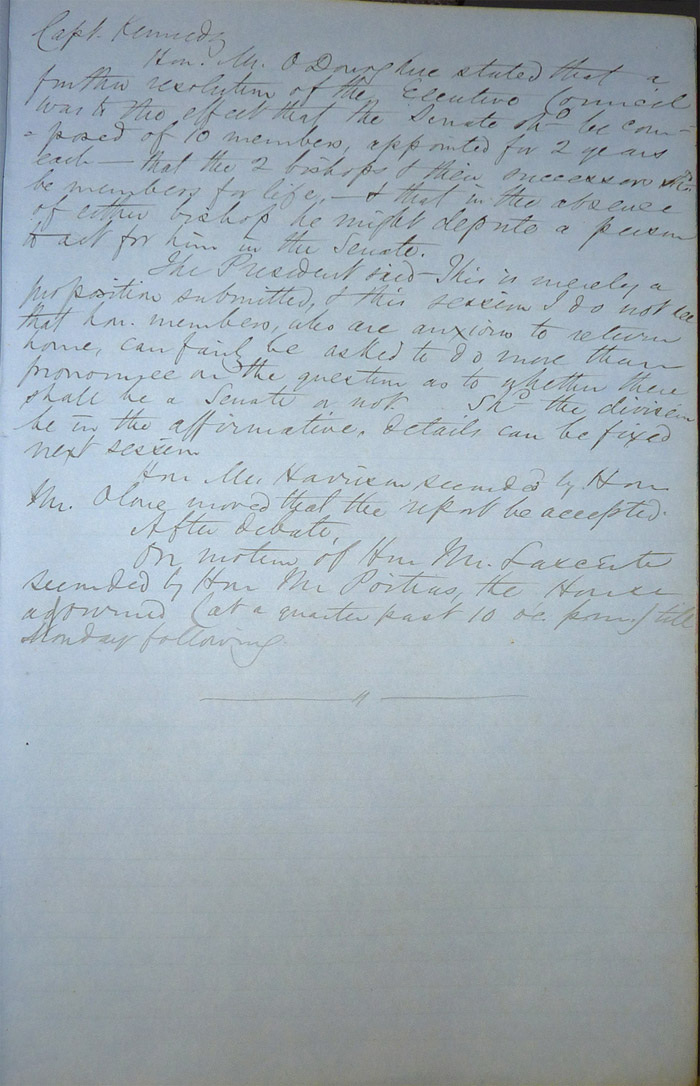 Capt. Kennedy
Hon. Mr. O'Donoghue stated that a
further resolution of the Executive Council
was to the effect that the Senate shd be com-
-posed of 10 members, appointed for 2 years
each — that the 2 bishops & their successors shd
be members for life, — & that in the absence
of either bishop he might depute a person
to act for him in the Senate.
The President said — This is merely a
proposition submitted, & this session I do not see
that hon. members, who are anxious to return
home, can fairly be asked to do more than
pronounce on the question as to whether there
shall be a Senate or not Shd the division
be in the affirmative. Details can be fixed
next session
Hon Mr. Harrison seconded by Hon
Mr. Olone moved that the report be accepted.
After debate,
On motion of Hon Mr. Laxcerte
seconded by Hon Mr Poitras, the House
adjourned (at a quarter past 10 oc. p.m.) till
Monday following.